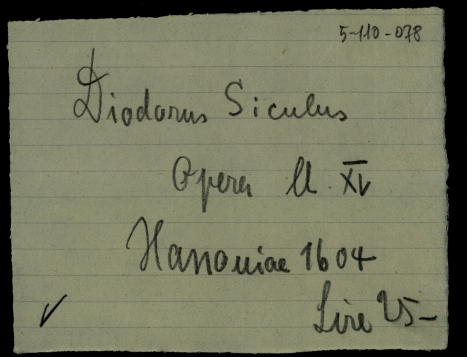 5-110-078
Diodorus Siculus
Opera ll. XV
Hanoniae 1604
Lire 25-